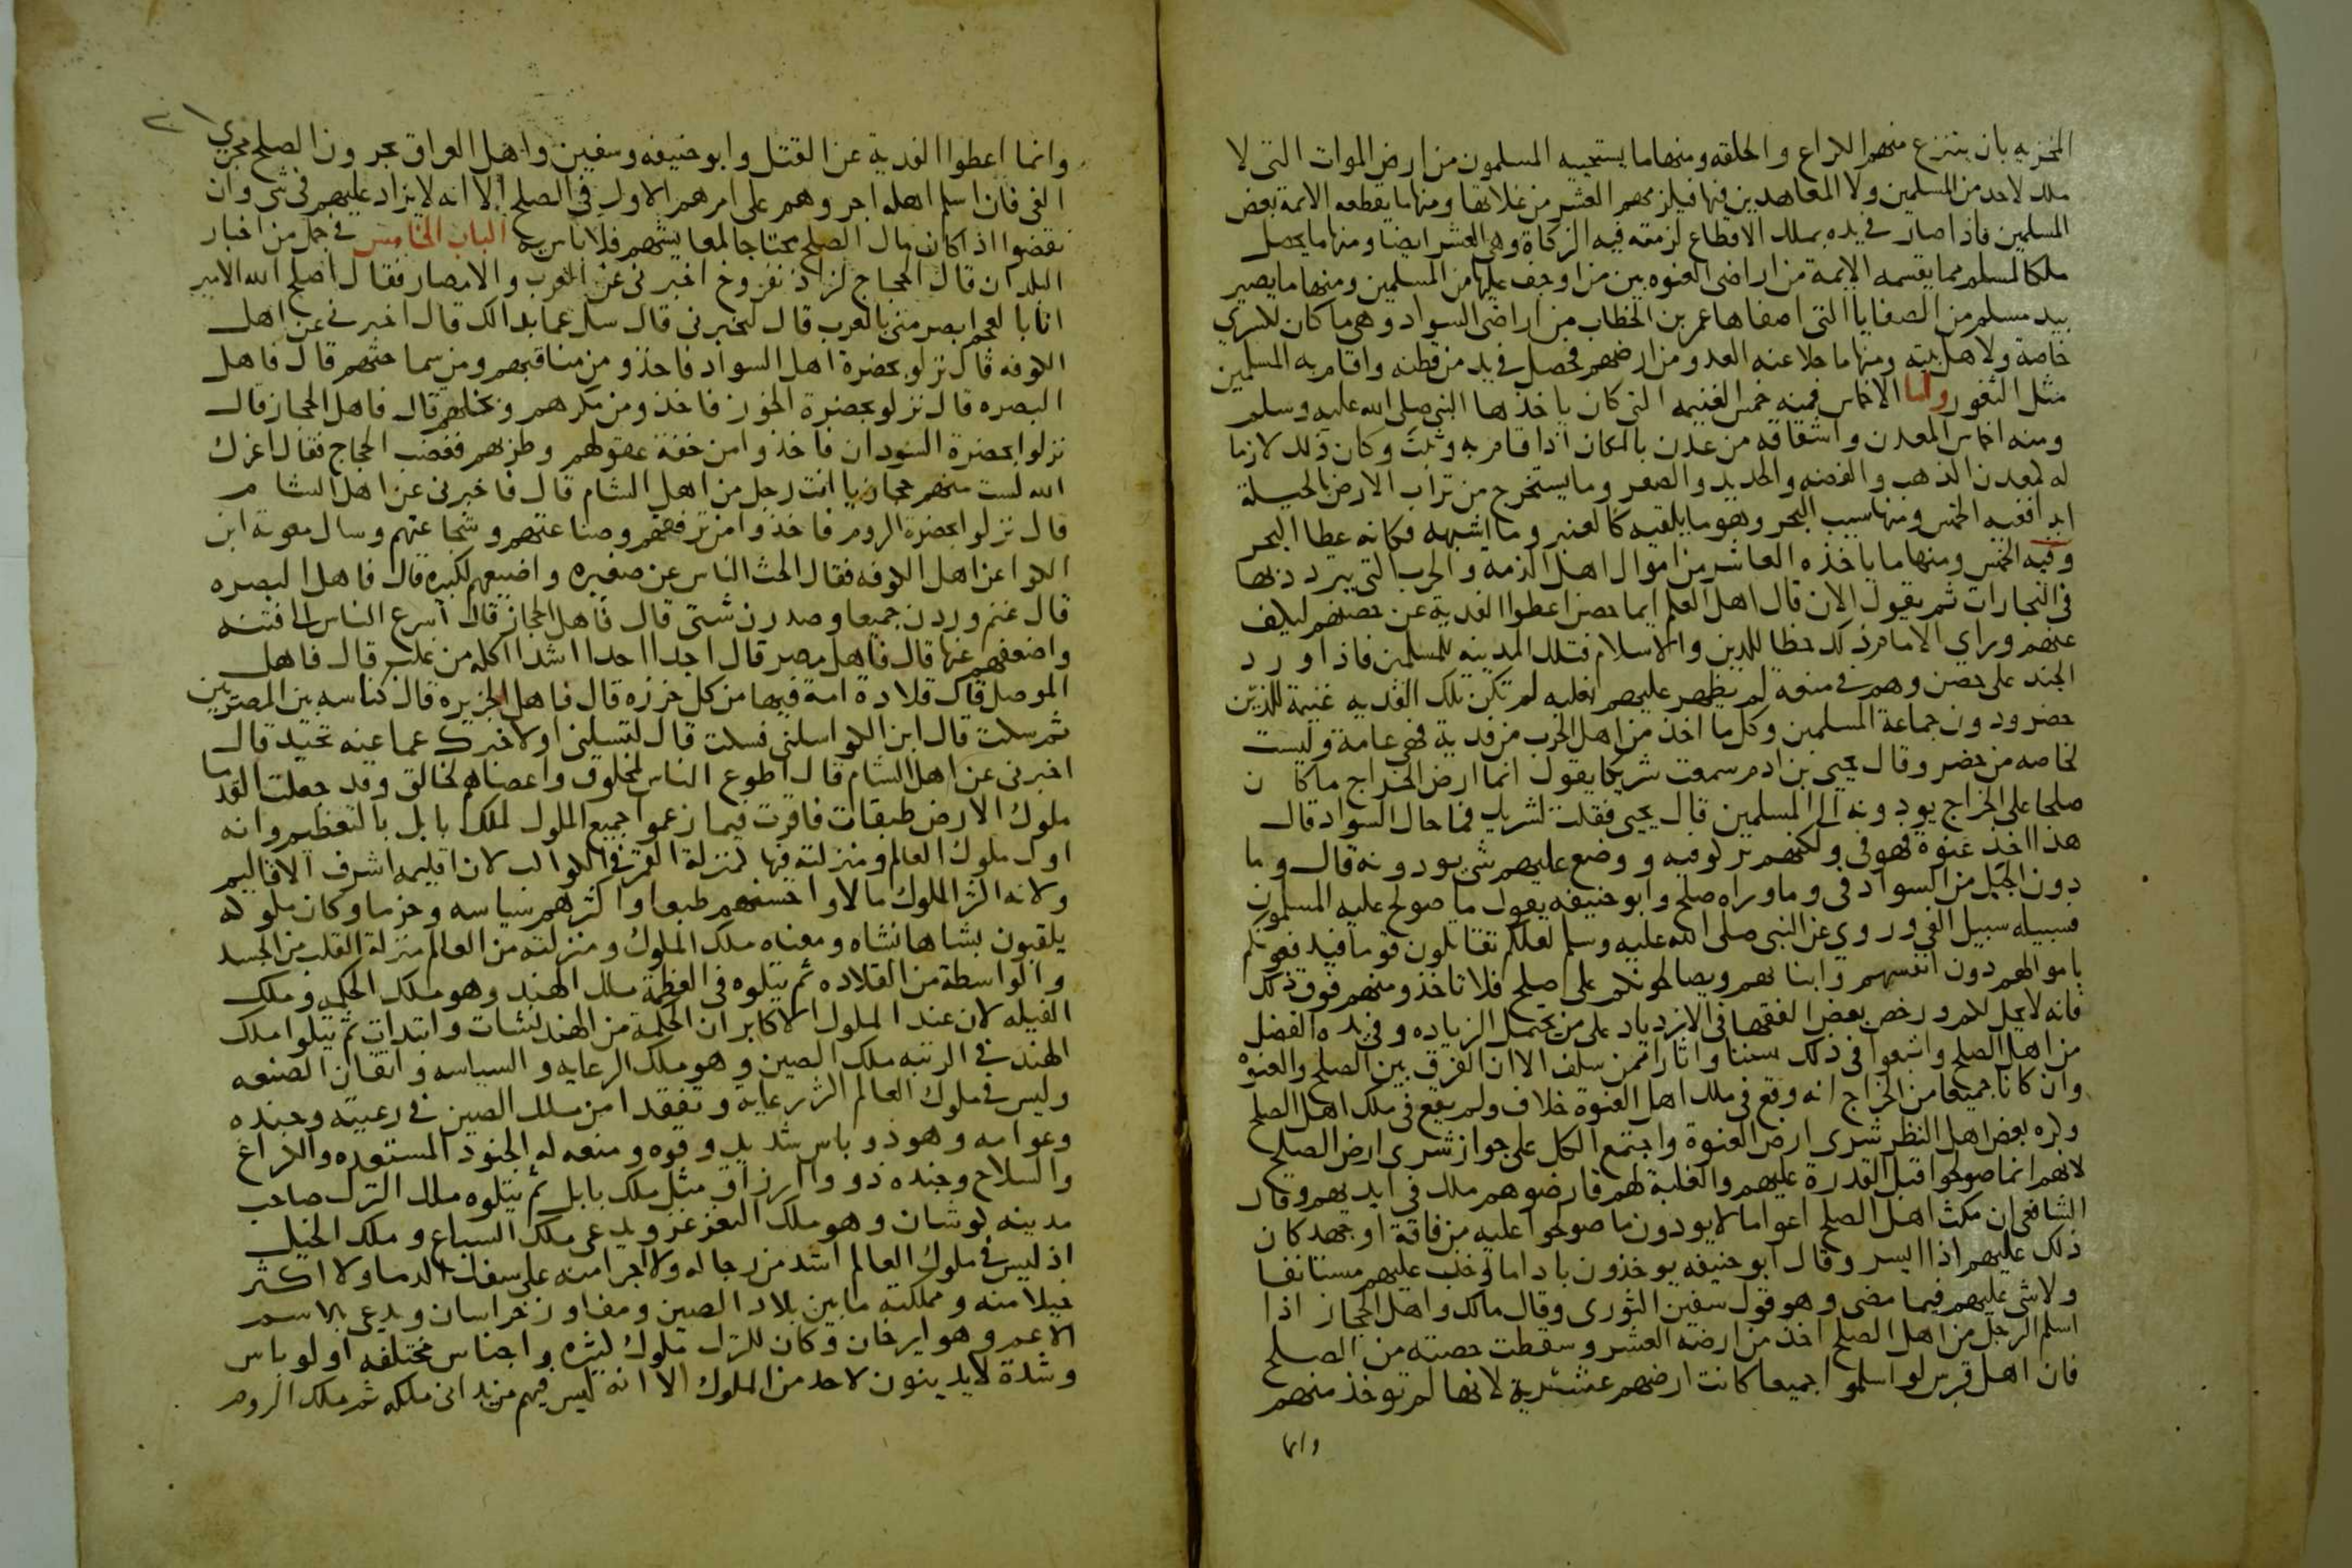 الجزيه بان ينتزع منهم الكراع والحلقه ومنها ما يستحييه المسلمون من ارض الموات التى لا
ملك لاحد من المسلمين ولا المعاهدين فيها فيلزمهم العشر من غلاتها ومنها ما يقطعه الايمة بعض
المسلمين فاذا صار فى يده بملك الاقطاع لزمته فيه الزكاة وهى العشر ايضا ومنها ما يحصل
ملكا لمسلم مما يقسمه الايمة من اراضى العنوه بين من اوجف عليها من المسلمين ومنها ما يصير
بيد مسلم من الصفايا التى اصفاها عمر بن الخطاب من اراضى السواد وهى ما كان لكسري
خاصة ولاهل بيته ومنها ما جلا عنه العدو من ارضهم فحصل فى يد من قطنه واقام به المسلمين
مثل الثغور واما الاخماس فمنه خمس الغنيمه التى كان ياخذها النبى صلى الله عليه وسلم
ومنه اخماس المعدن واشتقاقه من عدن بالمكان اذا قام به وثبت وكان ذلك لازما
له كمعدن الذهب والفضه والحديد والصفر وما يستخرج من تراب الارض بالحيلة
ابدا ففيه الخمس ومنها سيب البحر وهو ما يلقيه كالعنبر وما اشبهه فكانه عطا البحر
وفيه الخمس ومنها ما ياخذه العاشر من اموال اهل الذمه والحرب التى يتردد بها
فى التجارات ثم يقول الان قال اهل العلم ايما حصن اعطوا الفدية عن حصنهم ليكف
عنهم وراي الامام ذلك حظا للدين والاسلام فتلك المدينه للمسلمين فاذا ورد
الجند على حصن وهم فى منعة لم يظهر عليهم بغلبه لم تكن تلك الفديه غنيمة للذين
حضرو دون جماعة المسلمين وكل ما اخذ من اهل الحرب من فدية فهى عامة وليست
لخاصه من حضر وقال يحيى بن ادم سمعت شريكا يقول انما ارض الخراج ما كان
صلحا على الخراج يودونه الى المسلمين قال يحيى فقلت لشريك فما حال السواد قال
هذا اخذ عنوة فهو فى ولكنهم تركو فيه ووضع عليهم شى يودونه قال وما
دون الجبل من السواد فى وما وراه صلح وابو حنيفه يقول ما صولح عليه المسلمون
فسبيله سبيل الفى وروي عن النبى صلى الله عليه وسلم لعلكم تقاتلون قوما فيدفعونكم
باموالهم دون انفسهم وابنايهم ويصالحونكم على صلح فلا تاخذو منهم فوق ذلك
فانه لا يحل لكم ورخص بعض الفقها فى الازدياد على من يحتمل الزياده وفى يده الفضل
من اهل الصلح واتبعوا فى ذلك سننا واثارا ممن سلف الا ان الفرق بين الصلح والعنوة
وان كانا جميعا من الخراج انه وقع فى ملك اهل العنوة خلاف ولم يقع فى ملك اهل الصلح
وكره بعض اهل النظر شرى ارض العنوة واجتمع الكل على جواز شرى ارض الصلح
لانهم انما صولحوا قبل القدرة عليهم والغلبة لهم فارضوهم ملك فى ايديهم وقال
الشافعى ان مكث اهل الصلح اعواما لا يودون ما صولحوا عليه من فاقة او جهد كان
ذلك عليهم اذا ايسر وقال ابو حنيفه يوخذون باداما وجب عليهم مستانفا
ولا شى عليهم فيما مضى وهو قول سفين الثورى وقال مالك واهل الحجاز اذا
اسلم الرجل من اهل الصلح اخذ من ارضه العشر وسقطت حصته من الصلح
فان اهل قبرس لو اسلموا جميعا كانت ارضهم عشرية لانها لم توخذ منهم
وانما
وانما اعطوا الفدية عن القتل وابو حنيفه وسفين واهل العراق يجرون الصلح مجري
الفى فان اسلم اهله اجروهم على امرهم الاول فى الصلح الا انه لا يزاد عليهم فى شى وان
نقضوا اذا كان مال الصلح محتاجا لمعايشهم فلا باس به الباب الخامس فى جمل من اخبار
البلدان قال الحجاج لزاذنفروخ اخبرنى عن العرب والامصار فقال اصلح الله الامير
انا بالعجم ابصر منى بالعرب قال لتخبرنى قال سل عما بدا لك قال اخبرنى عن اهل
الكوفه قال نزلو بحضرة اهل السواد فاخذو من مناقبهم ومن سماحتهم قال فاهل
البصره قال نزلو بحضرة الخوز فاخذو من مكرهم وبخلهم قال فاهل الحجاز قال
نزلوا بحضرة السودان فاخذوا من خفة عقولهم وطربهم فغضب الحجاج فقال اعزك
الله لست منهم حجازيا انت رجل من اهل الشام قال فاخبرنى عن اهل الشام
قال نزلوا بحضرة الروم فاخذوا من ترفقهم وصناعتهم وشجاعتهم وسال معوية ابن
الكوا عن اهل الكوفه فقال ابحث الناس عن صغيره واضيعهم لكبيره قال فاهل البصره
قال غنم وردن جميعا وصدرن شتى قال فاهل الحجاز قال اسرع الناس الى فتنه
واضعفهم عنها قال فاهل مصر قال احدا احدا اشدا اكله من غلب قال فاهل
الموصل قال قلادة امة فيها من كل خرزه قال فاهل الجزيره قال كناسه بين المصرين
ثم سكت قال ابن الكوا سلنى فسكت قال لتسلنى او لاخبرك عما عنه تحيد قال
اخبرنى عن اهل الشام قال اطوع الناس لمخلوق واعصاهم لخالق وقد جعلت القدما
ملوك الارض طبقات فاقرت فيما زعموا جميع الملوك لملك بابل بالتعظيم وانه
اول ملوك العالم ومنزلته فيها كمنزلة القمر فى الكواكب لان اقليمه اشرف الاقاليم
ولانه اكثر الملوك مالا واحسنهم طبعا واكثرهم سياسه وحزما وكان ملوكه
يلقبون بشاهانشاه ومعناه ملك الملوك ومنزلته من العالم منزلة القلب من الجسد
والواسطة من القلاده ثم يتلوه فى العظمة ملك الهند وهو ملك الحكمه وملك
الفيله لان عند الملوك الاكابر ان الحكمة من الهند نشات وابتدات ثم يتلوا ملك
الهند فى الرتبه ملك الصين وهو ملك الرعايه والسياسه واتقان الصنعه
وليس فى ملوك العالم اكثر رعاية وتفقدا من ملك الصين فى رعيته وجنده
وعوامه وهو ذو باس شديد وقوه ومنعه له الجنود المستعده والكراع
والسلاح وجنده ذووا ارزاق مثل ملك بابل ثم يتلوه ملك الترك صاحب
مدينه كوشان وهو ملك التغزغز ويدعى ملك السباع وملك الخيل
اذ ليس فى ملوك العالم اشد من رجاله ولا اجرا منه على سفك الدما ولا اكثر
خيلا منه ومملكته ما بين بلاد الصين ومفاوز خراسان ويدعى بالاسم
الاعم وهو ايرخان وكان للترك ملوك كثيره واجناس مختلفه اولو باس
وشدة لا يدينون لاحد من الملوك الا انه ليس فيهم من يدانى ملكه ثم ملك الروم